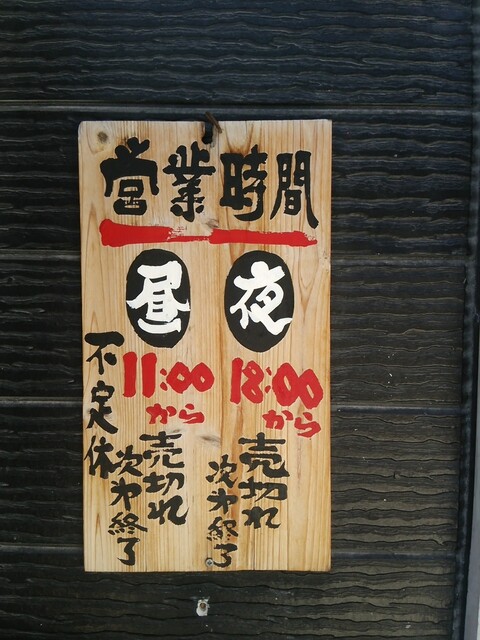 営業時間
夜
18:00
から
売切れ
次第終了
昼
11:00
から
売切れ
次第終了
不定休